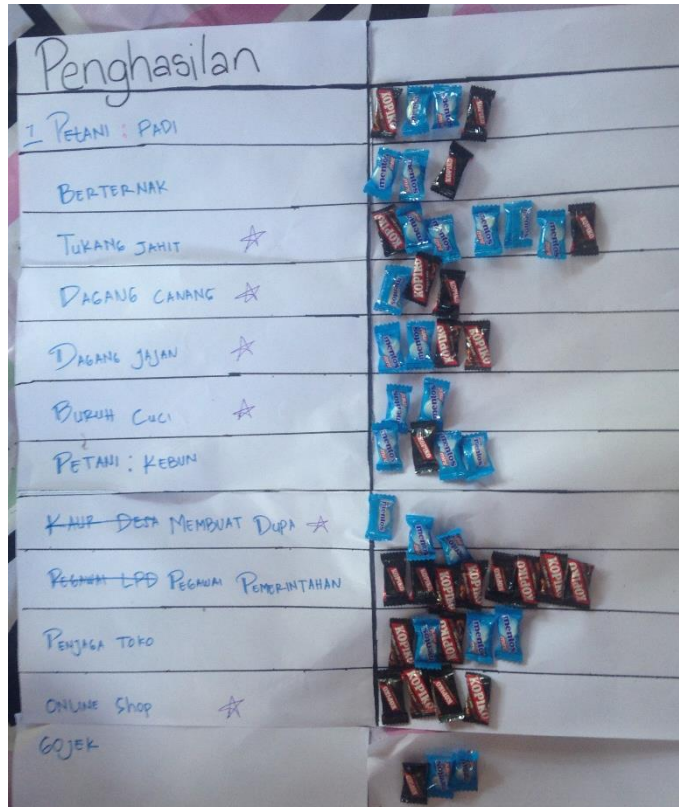 Penghasilan
1 PETANI : PADI
BERTERNAK
TUKANG JAHIT
DAGANG CANANG
DAGANG JAJAN
BURUH CUCI
PETANI : KEBUN
KAUR DESA MEMBUAT DUPA
PEGAWAI LPD PEGAWAI PEMERINTAHAN
PENJAGA TOKO
ONLINE Shop
GOJEK
KOPIKO
mentos